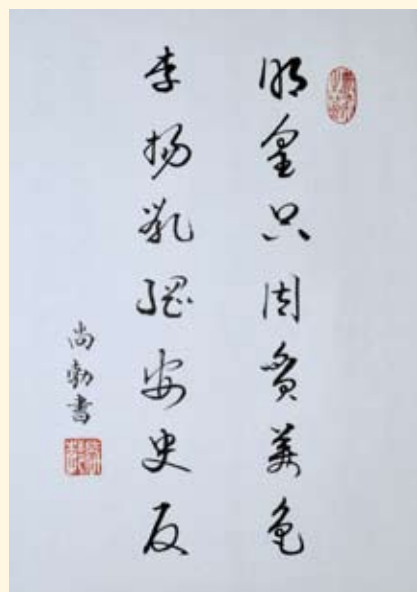 明皇只因贪美色
李杨乱纲安史反
尚勃书